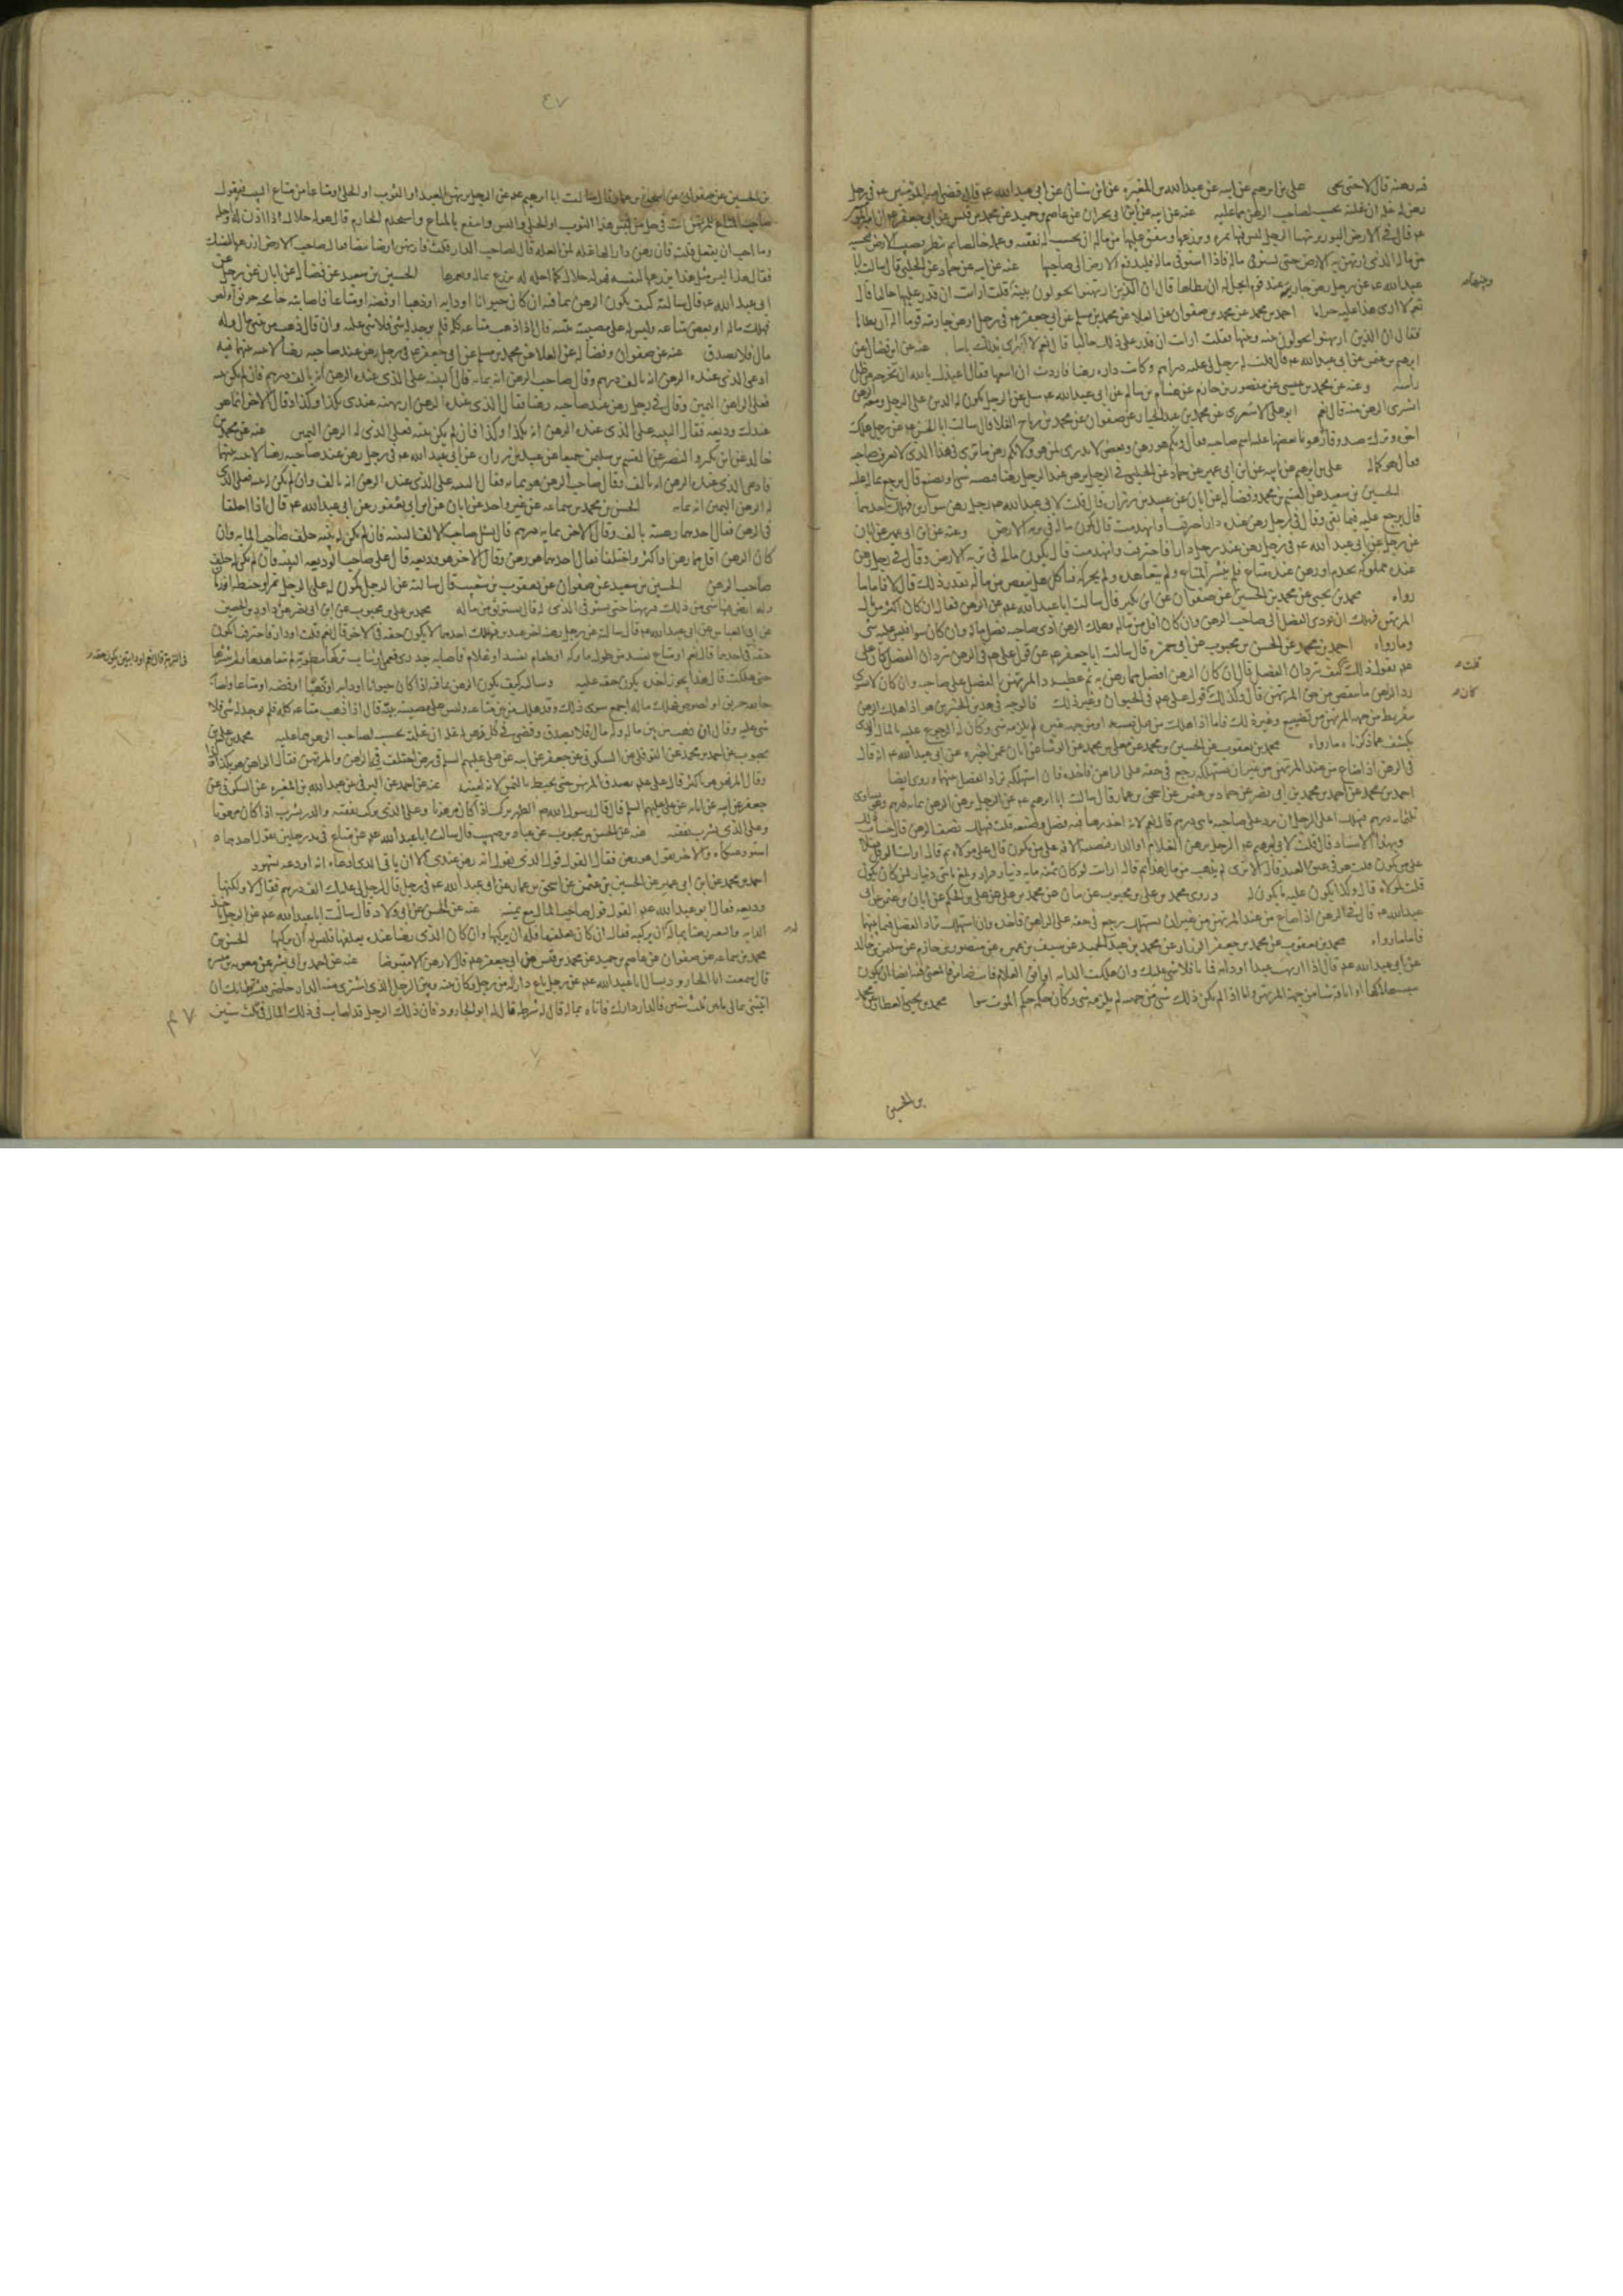 فيه رهنه قال لا حتى يحيى على بن ابرهيم عن ابيه عن عبدالله بن المغيره عن ابن سنان عن ابى عبدالله عم قال قضى امير المؤمنين عم فى رجل
رهن له غله ان غلته تحسب لصاحب الرهن مما عليه عنه عن ابيه عن ابن ابى بحران عن عاصم بن حميد عن محمد بن قيس عن ابى جعفر عم ان امير
عم قال فى الارض البور يرتهنها الرجل ليس فيها ثمره وزرعها وينفق عليها من ماله ان يحسب له نفقته وعمله خالصا ثم ينظر نصيب الارض فيحسبه
من ماله الذى ارتهن به الارض حتى يستوفى ماله فاذا استوفى ماله فليدفع الارض الى صاحبها عنه عن ابيه عن حماد عن الحلبى قال سالت ابا
عبدالله عم عن رجل رهن جاريه عند قوم ايحل له ان يطاها قال ان الذين ارتهنوها يحولون بينه قلت ارايت ان قدر عليها خاليا قال
نعم لا ارى هذا عليه حراما احمد بن محمد عن محمد بن صفوان عن العلا عن محمد بن مسلم عن ابى جعفر عم فى رجل رهن جاريته قوما اله ان يطاها
فقال ان الذين ارتهنوها يحولون بينه وبينها فقلت ارايت ان قدر على ذلك خاليا قال نعم لا ارى بذلك باسا عنه عن ابن فضال عن
ابرهيم بن عثمن عن ابى عبدالله عم قال قلت له رجل لى عليه دراهم وكانت داره رهنا فاردت ان ابيعها فقال اعيذك بالله ان تخرجه من ظل
راسه وعنه عن محمد بن عيسى عن منصور بن حازم عن هشام بن سالم عن ابى عبدالله عم سئل عن الرجل يكون له الدين على الرجل ومعه الرهن
اشترى الرهن منه قال نعم ابو على الاشعرى عن محمد بن عبدالجبار عن صفوان عن محمد بن رياح القلا قال سالت ابا الحسن عم عن رجل هلك
اخوه وترك صندوقا فيه رهون بعضها عليه اسم صاحبه
فقال هو كماله على بن ابرهيم عن ابيه عن ابن ابى عمير عن حماد عن الحلبى فى الرجل يرهن عند الرجل رهنا فيصيبه شى او يضيع قال يرجع بماله عليه
الحسين بن سعيد عن القسم بن محمد وفضاله عن ابان عن عبيد بن زراره قال قلت لابى عبدالله عم رجل رهن سوارين فهلك احدهما
قال يرجع عليه فيما بقى وقال فى رجل رهن عنده دارا فاحترقت او انهدمت قال يكون ماله فى تربه الارض وعنه عن ابن ابى عمير عن ابان
عن رجل عن ابى عبدالله عم فى رجل رهن عند رجل دارا فاحترقت وانهدمت قال يكون ماله فى تربه الارض وقال فى رجل رهن
عنده مملوكه يجذم او رهن عنده متاع فلم ينشر المتاع ولم يتعاهده ولم يحركه فتاكل هل ينقص من ماله بقدر ذلك قال لا فاما ما
رواه محمد بن يحيى عن محمد بن الحسين عن صفوان عن ابن بكير قال سالت ابا عبدالله عم عن الرهن فقال ان كان اكثر من مال
المرتهن فهلك ان يؤدى الفضل الى صاحب الرهن وان كان اقل من ماله وهلك الرهن ادى صاحبه فضل ماله وان كان سوا فليس عليه شى
وما رواه احمد بن محمد عن الحسن بن محبوب عن ابى حمزه قال سالت ابا جعفر عم عن قول على عم فى الرهن يترادان الفضل كان على
عم يقول ذلك قلت كيف يترادان الفضل قال ان كان الرهن افضل مما رهن به ثم عطب رد المرتهن الفضل على صاحبه وان كان لا يسوى
رد الراهن ما نقص من حق المرتهن قال وكذلك قول على عم فى الحيوان وغير ذلك فالوجه فى هذين الخبرين هو اذا هلك الرهن
بتفريط من جهه المرتهن من تضييع وغير ذلك فاما اذا هلك من قبل نفسه او من جهه غيره لم يلزمه شى وكان له الرجوع عليه بالمال الذى
يكشف عما ذكرناه ما رواه محمد بن يعقوب عن الحسين بن محمد عن معلى بن محمد عن الوشا عن ابان عمن اخبره عن ابى عبدالله عم انه قال
فى الرهن اذا ضاع من عند المرتهن من غير ان يستهلكه رجع فى حقه على الراهن فاخذه فان استهلكه ترادا الفضل بينهما وروى ايضا
احمد بن محمد عن احمد بن محمد بن ابى نصر عن حماد بن عثمن عن اسحق بن عمار قال سالت ابا ابرهيم عم عن الرجل يرهن الرهن بمائه درهم وهو يساوى
ثلثمائه درهم فيهلك اعلى الرجل ان يرد على صاحبه مائتى درهم قال نعم لانه اخذ رهنا فيه فضل وضيعه قلت فهلك نصف الرهن قال حساب ذلك
وبهذا الاسناد قال قلت لابى ابرهيم عم الرجل يرهن الغلام او الدار فتصيبه الافه على من يكون قال على مولاه ثم قال ارايت لو قتل قتيلا
على من يكون قلت هو فى عنق العبد قال الا ترى لم يذهب من مال هذا ثم قال ارايت لو كان ثمنه مايه دينار فزاد وبلغ مائتى دينار لمن كان يكون
قلت لمولاه قال وكذا يكون عليه ما يكون له وروى محمد بن على بن محبوب عن بنان عن محمد بن على عن على بن الحكم عن ابان بن عثمن عن ابى
عبدالله عم قال فى الرهن اذا ضاع من عند المرتهن من غير ان يستهلك رجع فى حقه على الراهن فاخذه وان استهلك ترادا الفضل فيما بينهما
فاما ما رواه محمد بن يعقوب عن محمد بن جعفر الرزاز عن محمد بن عبدالحميد عن سيف بن عميره عن منصور بن حازم عن سليمن بن خالد
عن ابى عبدالله عم قال اذا ارتهنت عبدا او دابه فماتا فلا شى عليك وان هلكت الدابه او ابق الغلام فانت ضامن فالمعنى فيه ايضا ان يكون
سبب هلاكها او اباقه شيا من جهه المرتهن واما اذا لم يكن ذلك بشى من جهته لم يلزمه شى وكان حكمه حكم الموت سوا محمد بن يحيى العطار عن محمد
وبينها
قلت
كان
بن الحسين
٤٧
بن الحسين عن صفوان عن اسحق بن عمار قال سالت ابا ابرهيم عم عن الرجل يرتهن العبد او الثوب او الحلى او متاعا من متاع البيت فيقول
صاحب المتاع للمرتهن انت فى حل من لبس هذا الثوب او الحلى والبس وانتفع بالمتاع واستخدم الخادم قال هو له حلال اذا اذن له واحله
وما احب ان يفعل قلت فان رهن دارا لها غله لمن الغله قال لصاحب الدار قلت فارتهن ارضا بيضا فقال صاحب الارض ازرعها لنفسك
فقال هذا ليس مثل هذا يزرعها لنفسه فهو له حلال كما احله له يزرع بماله ويعمرها الحسين بن سعيد عن فضاله عن ابان عن رجل عن
ابى عبدالله عم قال سالته كيف يكون الرهن بما فيه ان كان حيوانا او دابه او ذهبا او فضه او متاعا فاصابته جايحه حريق او لص
فهلك ماله او بعض متاعه وليس له على مصيبته بينه قال اذا ذهب متاعه كله فلم يوجد له شى فلا شى عليه وان قال ذهب من بين مالى وله
مال فلا يصدق عنه عن صفوان وفضاله عن العلا عن محمد بن مسلم عن ابى جعفر عم فى رجل رهن عند صاحبه رهنا لا بينه بينهما فيه
ادعى الذى عنده الرهن انه بالف درهم وقال صاحب الرهن انه بمايه قال البينه على الذى عنده الرهن انه بالف درهم فان لم يكن بينه
فعلى الراهن اليمين وقال فى رجل رهن عند صاحبه رهنا فقال الذى عنده الرهن ارتهنته عندى بكذا وكذا وقال الاخر انما هو
عندك وديعه فقال البينه على الذى عنده الرهن انه بكذا وكذا فان لم يكن بينه فعلى الذى له الرهن اليمين عنه عن محمد بن
خالد عن ابن بكير والنضر عن القسم بن سليمن جميعا عن عبيد بن زراره عن ابى عبدالله عم فى رجل رهن عند صاحبه رهنا لا بينه بينهما
فادعى الذى عنده الرهن انه بالف وقال صاحب الرهن هو بمايه فقال البينه على الذى عنده الرهن انه بالف وان لم يكن له بينه فعلى الذى
له الرهن اليمين انه بمايه الحسن بن محمد بن سماعه عن غير واحد عن ابان عن ابن ابى يعفور عن ابى عبدالله عم قال اذا اختلفا
فى الرهن فقال احدهما رهنته بالف وقال الاخر بمايه درهم قال يسئل صاحب الالف البينه فان لم يكن له بينه حلف صاحب المايه وان
كان الرهن اقل مما رهن او اكثر واختلفا فقال احدهما هو رهن وقال الاخر هو وديعه قال على صاحب الوديعه البينه فان لم يكن له حلف
صاحب الرهن الحسين بن سعيد عن صفوان عن يعقوب بن شعيب قال سالته عن الرجل يكون له على الرجل تمر او حنطه او رمان
وله ارض فيها شى من ذلك فيرتهنها حتى يستوفى الذى له قال يستوثق من ماله محمد بن على بن محبوب عن ابن ابى نصر عن داود بن الحصين
عن ابى العباس عن ابى عبدالله عم قال سالته عن رجل رهن اخر عبدين فهلك احدهما ايكون حقه فى الاخر قال نعم قلت او دار فاحترقت ايكون
حقه فى احدهما قال نعم او متاع يفسد من طول ما تركه او طعام يفسد او غلام فاصابه جدرى فعمى او ثياب تركها مطويه لم يتعاهدها ولم ينشرها
حتى هلكت قال هذا يجوز اخذه يكون حقه عليه وسالته كيف يكون الرهن بما فيه اذا كان حيوانا او دابه او ذهبا او فضه او متاعا واصابه
جايحه حريق او لصوص فهلك ماله اجمع سوى ذلك وقد هلك من بين متاعه وليس على مصيبته بينه قال اذا ذهب متاعه كله فلم يوجد له شى فلا
شى عليه وقال ان ذهب من بين ماله وله مال فلا يصدق وقضى فى كل رهن له غله ان غلته تحسب لصاحب الرهن مما عليه محمد بن على بن
محبوب عن احمد بن محمد عن النوفلى عن السكونى عن جعفر عن ابيه عن على عليهم السلم فى رهن اختلف فيه الراهن والمرتهن فقال الراهن هو بكذا وكذا
وقال المرتهن هو باكثر قال على عم يصدق المرتهن حتى يحيط بالثمن لانه امينه عنه عن احمد عن البرقى عن عبدالله بن المغيره عن السكونى عن
جعفر عن ابيه عن ابائه عن على عليهم السلم قال قال رسول الله صم الظهر يركب اذا كان مرهونا وعلى الذى يركب نفقته والدر يشرب اذا كان مرهونا
وعلى الذى يشرب نفقته عنه عن الحسن بن محبوب عن عباد بن صهيب قال سالت ابا عبدالله عم عن متاع فى يد رجلين يقول احدهما
استودعتكاه والاخر يقول هو رهن فقال القول قول الذى يقول انه رهن عندى الا ان ياتى الذى ادعاه انه اودعه بشهود
احمد بن محمد عن ابن ابى عمير عن الحسين بن عثمن عن اسحق بن عمار عن ابى عبدالله عم فى رجل قال لرجل لى عليك الف درهم فقال لا ولكنها
وديعه فقال ابو عبدالله عم القول قول صاحب المال مع يمينه عنه عن الحسن عن ابى ولاد قال سالت ابا عبدالله عم عن الرجل ياخذ
الدابه والبعير رهنا بماله ان يركبه فقال ان كان يعلفها فله ان يركبها وان كان الذى رهنها عنده يعلفها فليس له ان يركبها الحسن بن
محمد بن سماعه عن صفوان عن عاصم بن حميد عن محمد بن قيس عن ابى جعفر عم قال لا رهن الا مقبوضا عنه عن احمد بن ابى بشر عن معويه بن ميسره
قال سمعت ابا الجارود يسال ابا عبدالله عم عن رجل باع دارا له من رجل وكان بينه وبين الرجل الذى اشترى منه الدار حاصر فشرط انك ان
اتيتنى بمالى ما بين ثلث سنين فالدار دارك فاتاه بماله قال له شرطه قال له ابو الجارود فان ذلك الرجل قد اصاب فى ذلك المال فى ثلث سنين